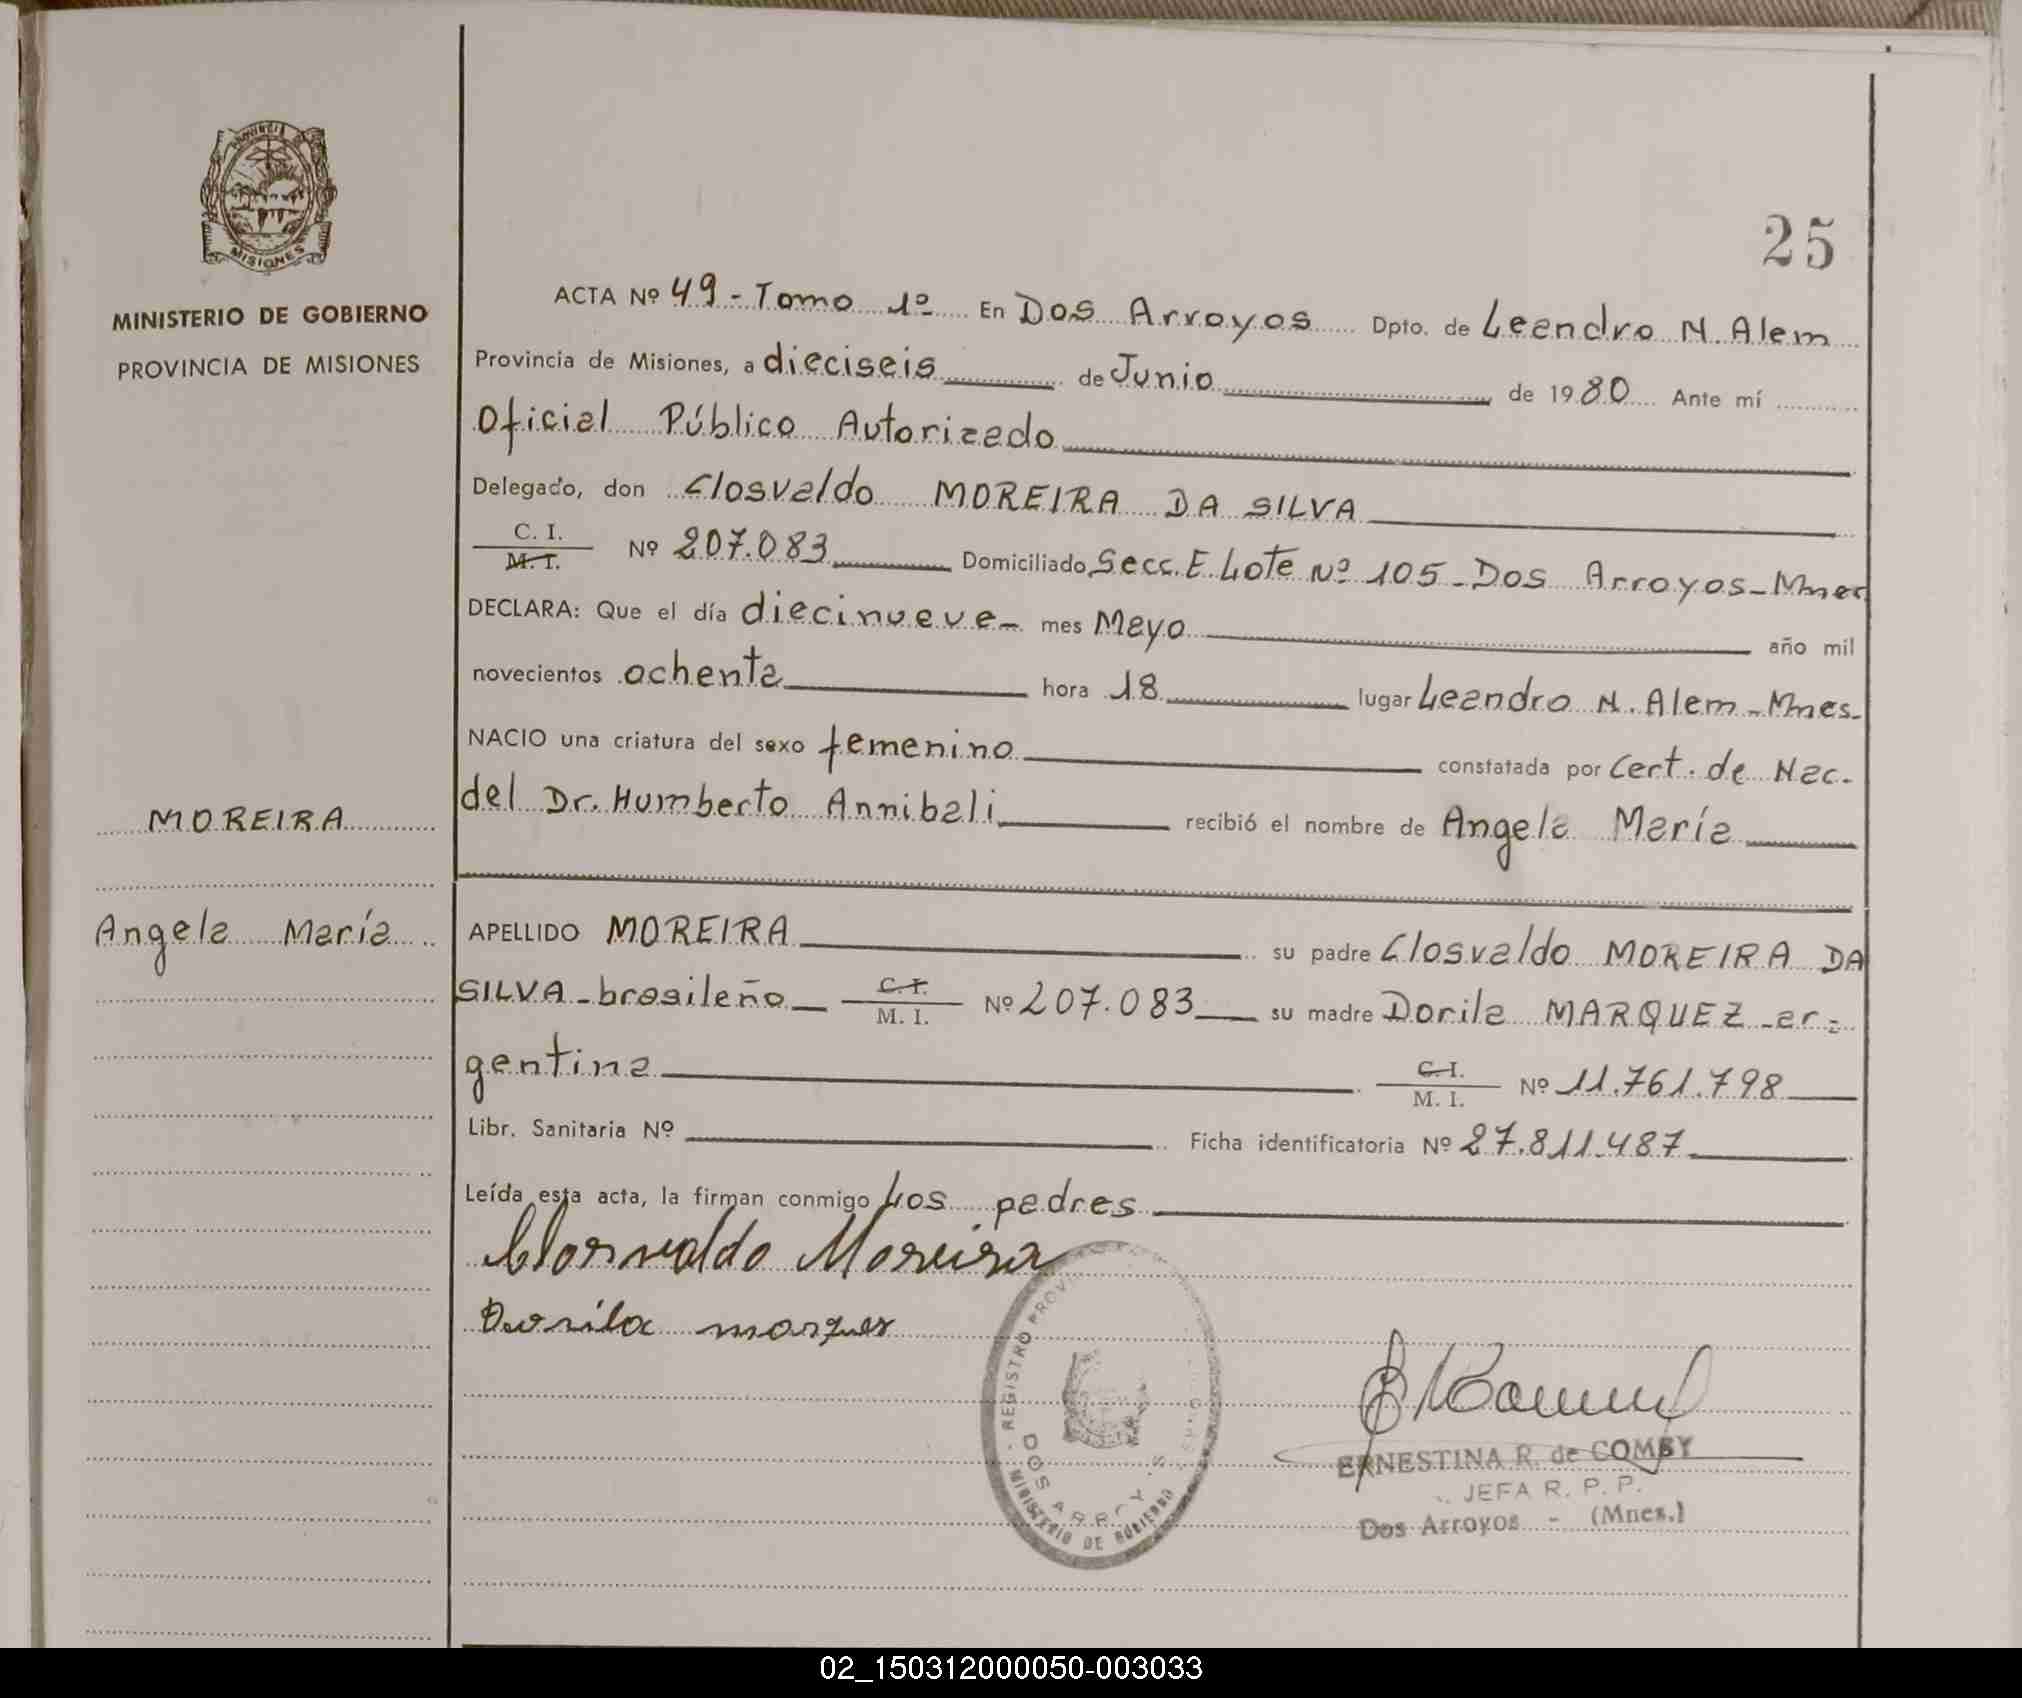 PROVINCIA
MISIONES
MINISTERIO DE GOBIERNO
PROVINCIA DE MISIONES
MOREIRA
Angela María
25
ACTA Nº 49 - Tomo 1º En Dos Arroyos Dpto. de Leandro N. Alem
Provincia de Misiones, a dieciseis de Junio de 1980 Ante mí
Oficial Público Autorizado
Delegado, don Closvaldo MOREIRA DA SILVA
C. I.
M. I. Nº 207.083 Domiciliado Secc. E. Lote Nº 105 - Dos Arroyos - Mnes
DECLARA: Que el día diecinueve - mes Mayo año mil
novecientos ochenta hora 18 lugar Leandro N. Alem - Mnes -
NACIO una criatura del sexo femenino constatada por Cert. de Nac.
del Dr. Humberto Annibali recibió el nombre de Angela María
APELLIDO MOREIRA su padre Closvaldo MOREIRA DA
SILVA - brasileño - C. I.
M. I. Nº 207.083 su madre Dorila MARQUEZ - ar=
gentina C. I.
M. I. Nº 11.761.798
Libr. Sanitaria Nº Ficha identificatoria Nº 27.811.487
Leída esta acta, la firman conmigo Los padres
Closvaldo Moreira
Dorila marques
REGISTRO PROV
DOS ARROYOS
MINISTERIO DE GOBIERNO
ERNESTINA R. de COMBY
JEFA R. P. P.
Dos Arroyos - (Mnes.)
02_150312000050-003033